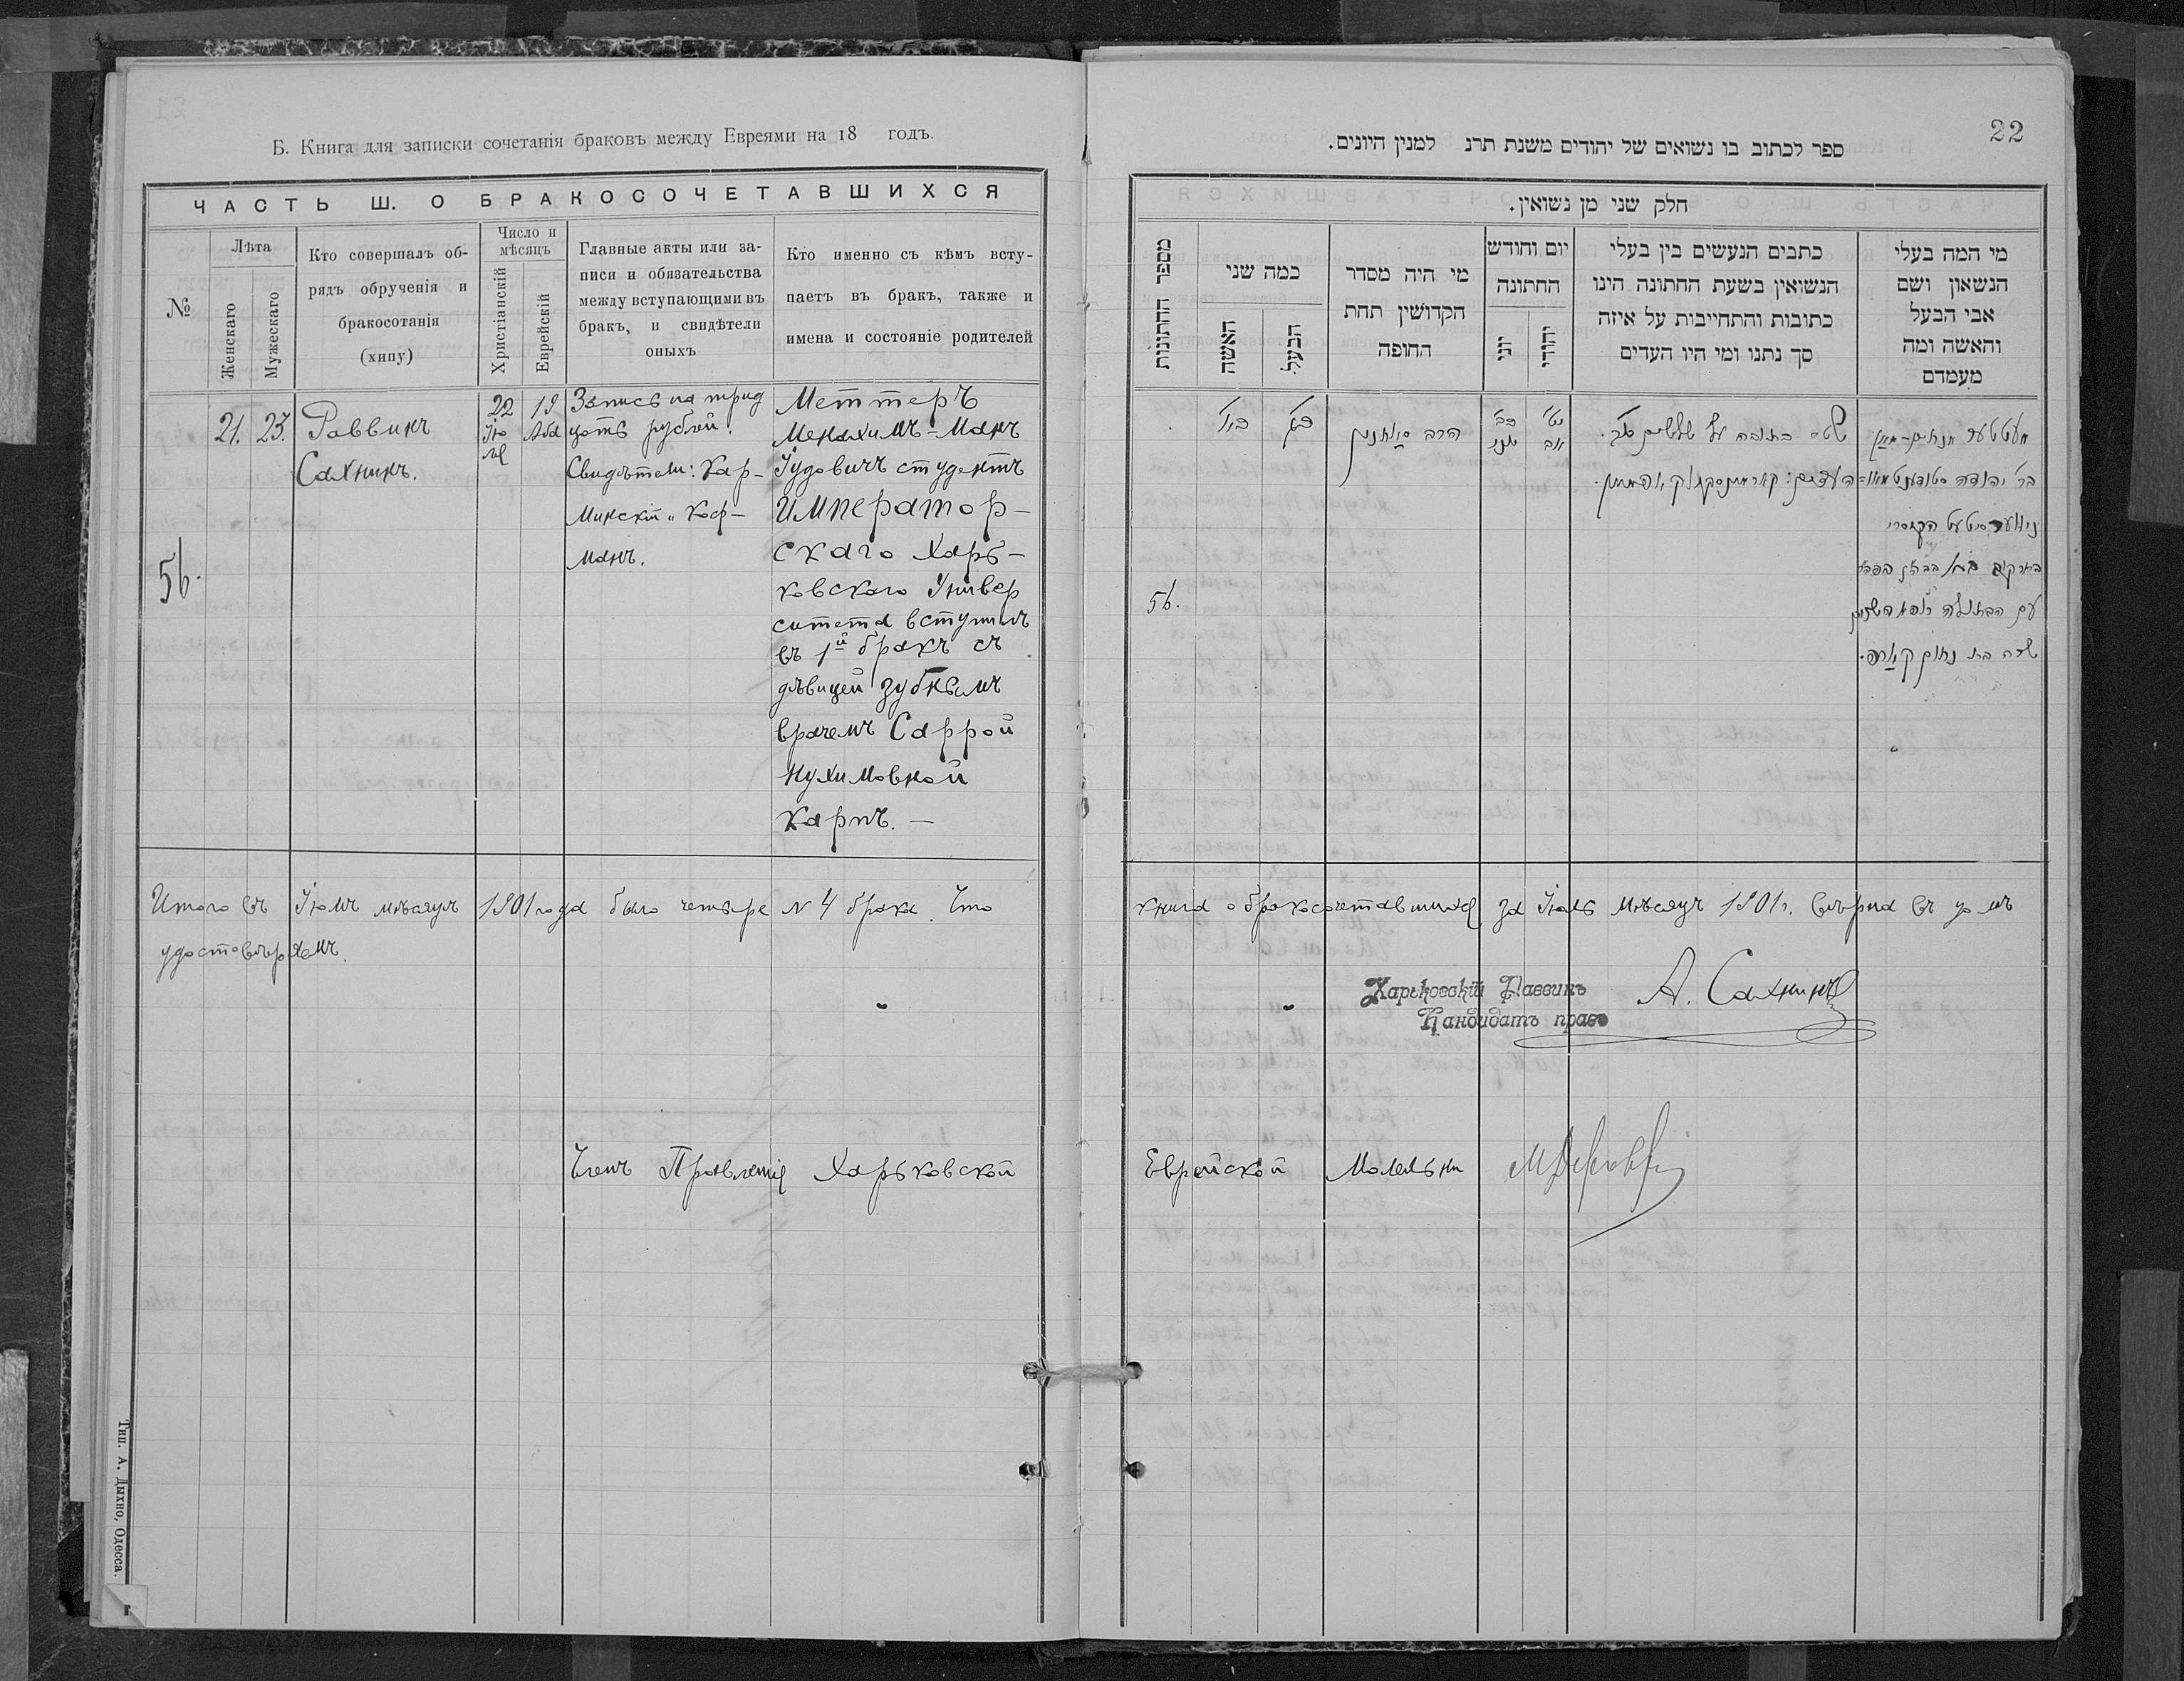 Б. Книга для записки сочетанія браковъ между Евреями на 18 годъ.
ЧАСТЬ Ш. О БРАКОСОЧЕТАВШИХСЯ
№
Лѣта
Женскаго
Мужескаго
Кто совершалъ об-
рядъ обрученія и
бракосотанія
(хипу)
Число и
мѣсяцъ
Христіанскій
Еврейскій
Главные акты или за-
писи и обязательства
между вступающими въ
бракъ, и свидѣтели
оныхъ
Кто именно съ кѣмъ всту-
паетъ въ бракъ, также и
имена и состояніе родителей
56.
21.
23.
Раввинъ
Сахнинъ.
22
Ію
ля
19
Аба
Запись на трид
цать рублей.
Свидѣтели: Кар-
минскій и Коф-
манъ.
Меттеръ
Менахимъ-Манъ
Іудовичъ студентъ
Император-
скаго Харь-
ковскаго Универ
ситета вступилъ
въ 1й бракъ съ
дѣвицей зубнымъ
врачемъ Саррой
Нухимовной
Карпъ. —
Итого въ Іюлѣ мѣсяцѣ 1901 года было четыре № 4 брака. Что
удостовѣряемъ.
Членъ Правленія Харьковской
Тип. А. Дыхно, Одесса.
22
ספר לכתוב בו נשואים של יהודים משנת תרנ למנין היונים.
חלק שני מן נשואין.
מספר החתונות
כמה שני
האשה
הבעל
מי היה מסדר
הקדושין תחת
החופה
יום וחודש
החתונה
יוני
יהודי
כתבים הנעשים בין בעלי
הנשואין בשעת החתונה הינו
כתובות והתחייבות על איזה
סך נתנו ומי היו העדים
מי המה בעלי
הנשאון ושם
אבי הבעל
והאשה ומה
מעמדם
56.
הרב סאחנין
אב
כתובה על שלשים
העדים: קארמינסקי
מעטטער
בר יהודה סטודענט
עם הבתולה רופא השינים
שרה בת נחום קארפ.
книга о бракосочетавшихся за Іюль мѣсяцъ 1901 г. вѣрна въ чемъ
Харьковскій Раввинъ
Кандидатъ правъ
А. Сахнинъ
Еврейской Молельни